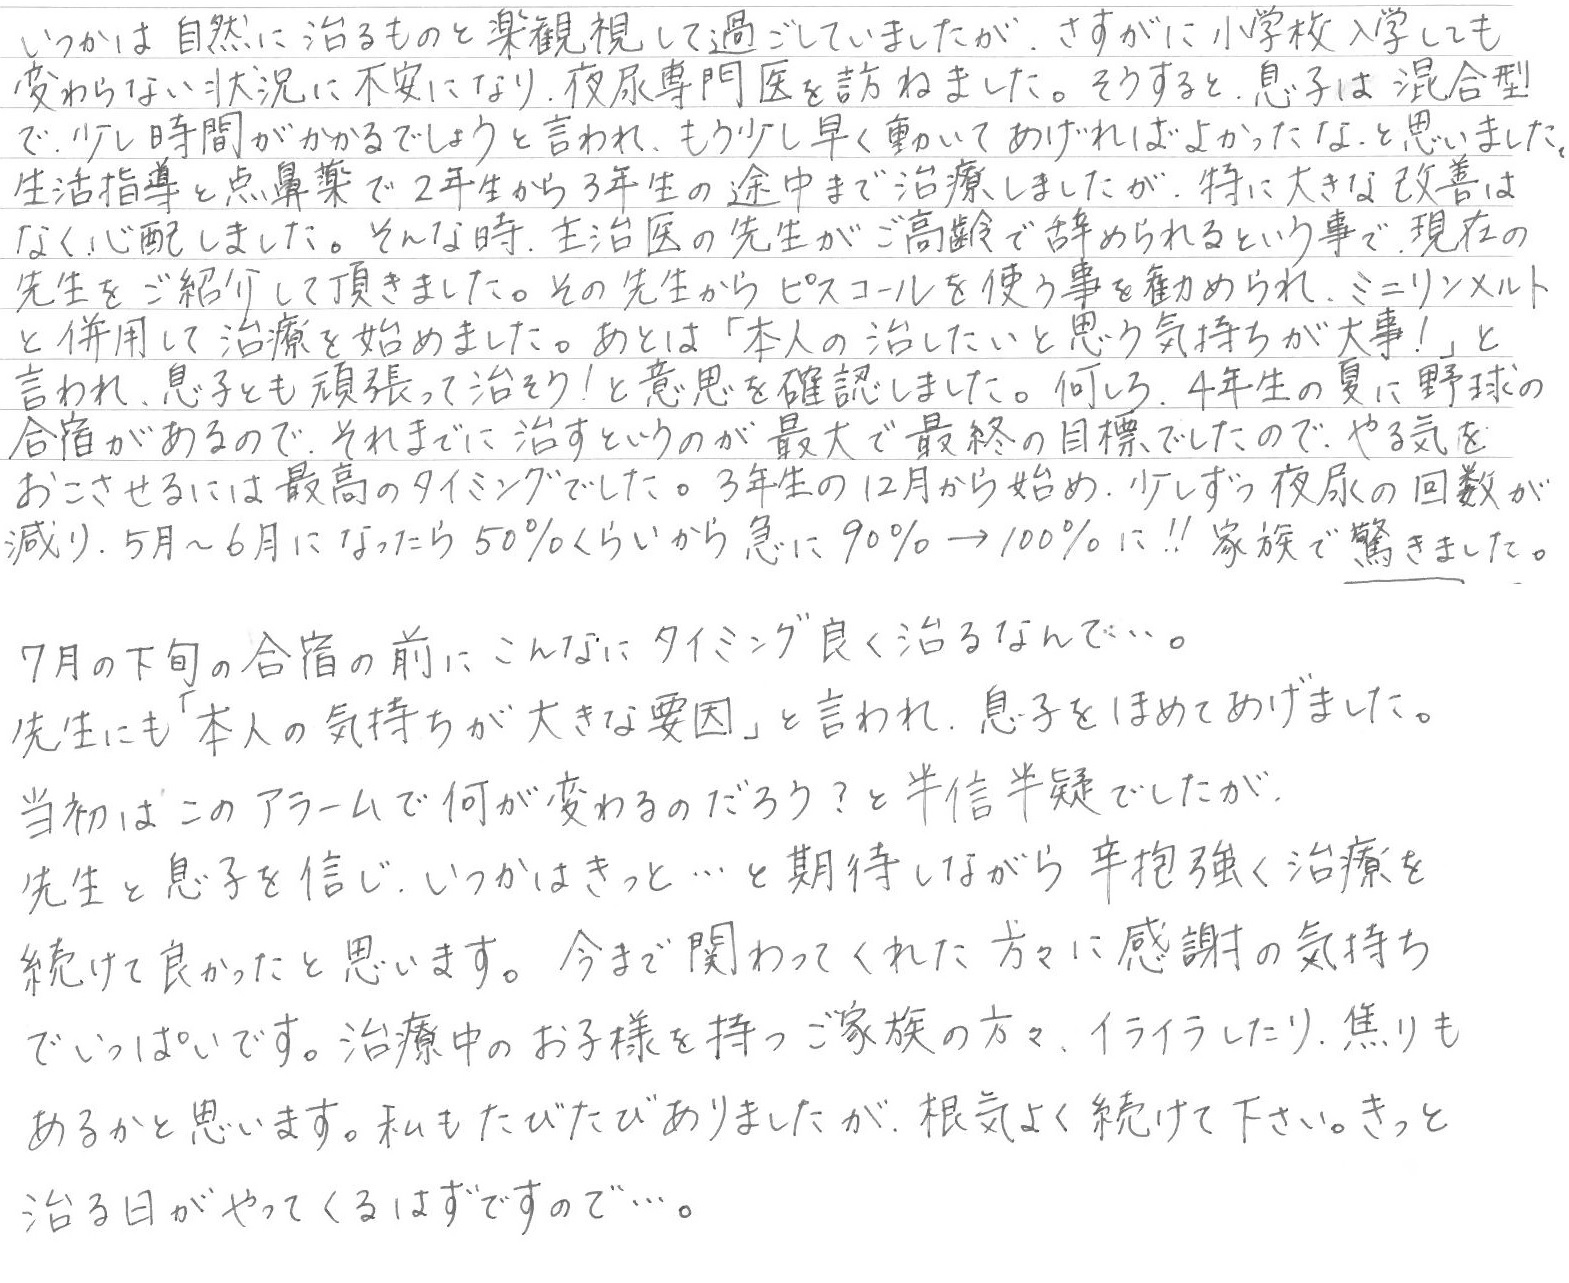 いつかは自然に治るものと楽観視して過ごしていましたが、さすがに小学校入学しても
変わらない状況に不安になり、夜尿専門医を訪ねました。そうすると、息子は混合型
で、少し時間がかかるでしょうと言われ、もう少し早く動いてあげればよかったな、と思いました。
生活指導と点鼻薬で2年生から3年生の途中まで治療しましたが、特に大きな改善は
なく、心配しました。そんな時、主治医の先生がご高齢で辞められるという事で、現在の
先生をご紹介して頂きました。その先生からピスコールを使う事を勧められ、ミニリンメルト
と併用して治療を始めました。あとは「本人の治したいと思う気持ちが大事!」と
言われ、息子とも頑張って治そう!と意思を確認しました。何しろ、4年生の夏に野球の
合宿があるので、それまでに治すというのが最大で最終の目標でしたので、やる気を
おこさせるには最高のタイミングでした。3年生の12月から始め、少しずつ夜尿の回数が
減り、5月~6月になったら50%くらいから急に90%→100%に!!家族で驚きました。
7月の下旬の合宿の前にこんなにタイミング良く治るなんて…。
先生にも「本人の気持ちが大きな要因」と言われ、息子をほめてあげました。
当初はこのアラームで何が変わるのだろう?と半信半疑でしたが、
先生と息子を信じ、いつかはきっと…と期待しながら辛抱強く治療を
続けて良かったと思います。今まで関わってくれた方々に感謝の気持ち
でいっぱいです。治療中のお子様を持つご家族の方々、イライラしたり、焦りも
あるかと思います。私もたびたびありましたが、根気よく続けて下さい。きっと
治る日がやってくるはずですので…。